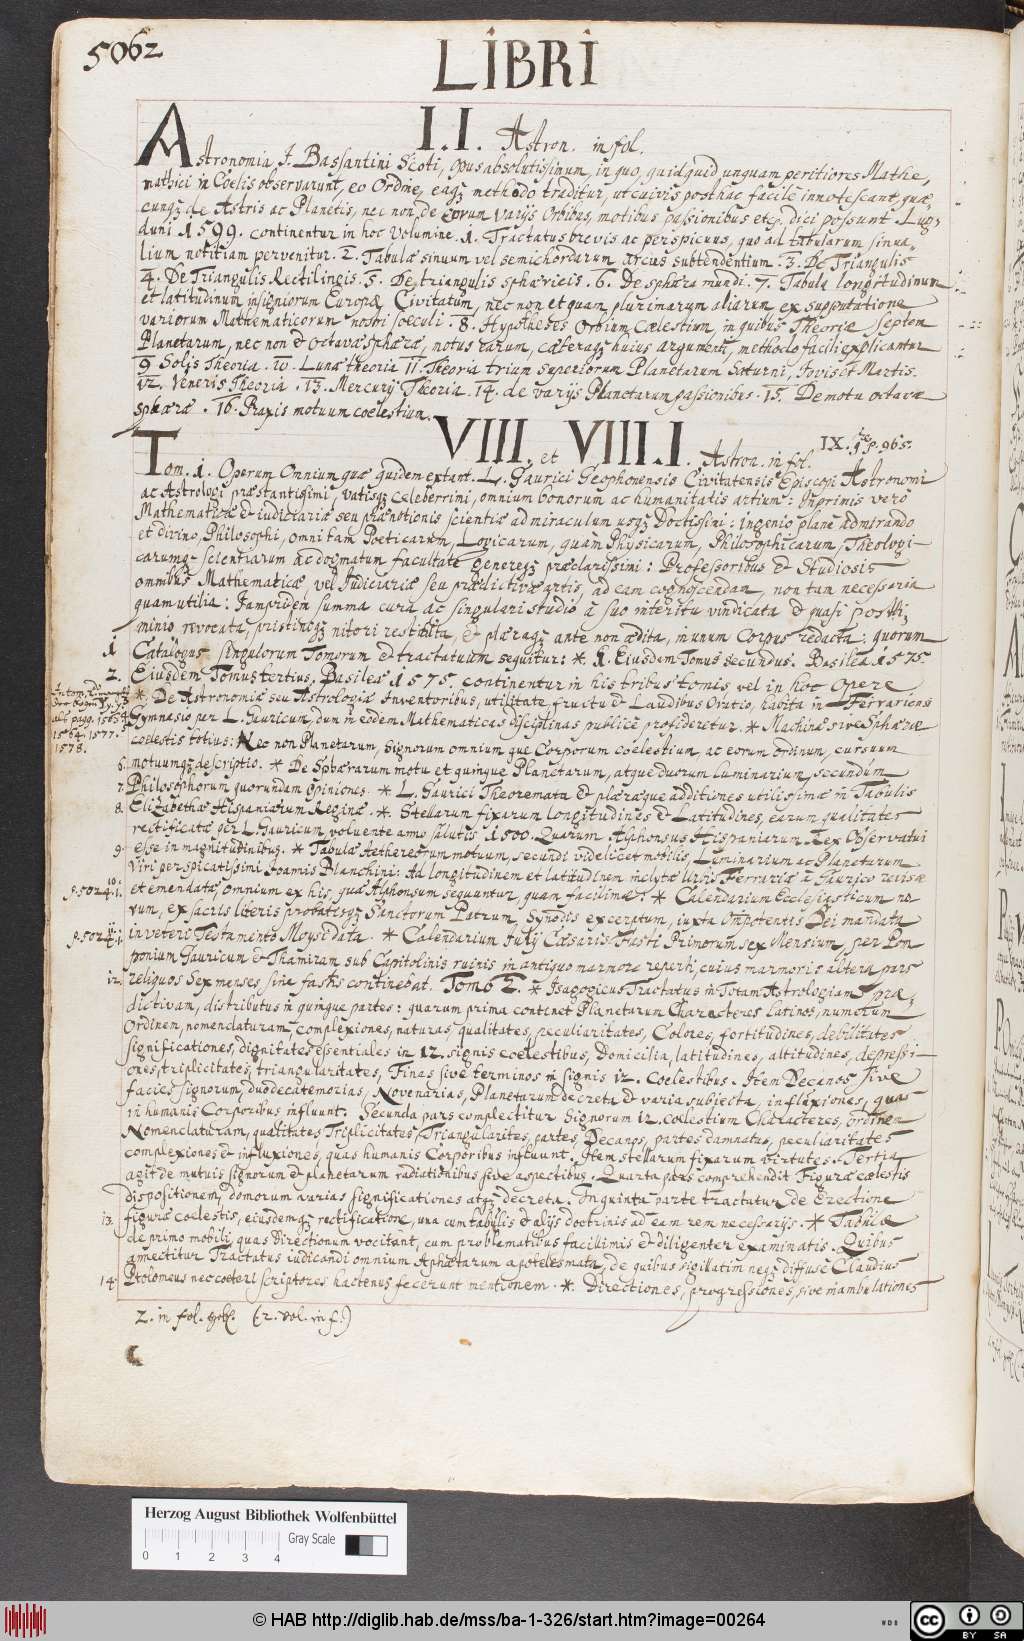 5062
LIBRI
I.I. Astron. in fol.
Astronomia J. Bassantini Scoti, opus absolutissimum, in quo, quidquid unquam peritiores Mathe,
matici in Coelis observarunt, eo Ordine, eaq; methodo traditur, ut cuivis posthac facilè innotescant, quæ,
cunq; de Astris ac Planetis, nec non de eorum varijs Orbibus, motibus passionibus etc. dici possunt. Lug,
duni 1599. continentur in hoc Volumine. 1. Tractatus brevis ac perspicuus, quo ad tabularum sinua,
lium notitiam pervenitur. 2. Tabulæ sinuum vel semichordarum arcus subtendentium. 3. De Triangulis
4. De Triangulis Rectilineis. 5. De triangulis sphæricis. 6. De sphæra mundi. 7. Tabula longitudinum
et latitudinum insigniorum Europæ Civitatum, nec non et quam plurimarum aliarum ex supputatione
variorum Mathematicorum nostri sœculi. 8. Hypotheses Orbium Cælestium, in quibus Theoriæ septem
Planetarum, nec non & octavæ sphæræ, motus earum, cæteraq; huius argumenti, methodo facili explicantur
9 Solis Theoria. 10. Lunæ theoria 11. Theoria trium superiorum Planetarum Saturni, Jovis et Martis.
12. Veneris Theoria. 13. Mercurij Theoria. 14. de varijs Planetarum passionibus. 15. De motu octavæ
sphæræ. 16. Praxis motuum coelestium.
VIII. et VIIII.I. Astron. in fol.
IX. p. 965.
Tom. 1. Operum Omnium quæ quidem extant. L. Gaurici Geophonensis Civitatensis Episcopi Astronomi
ac Astrologi præstantissimi, vatisq; celeberrimi, omnium bonorum ac humanitatis artium: Inprimis verò
Mathematicæ & iudiciariæ seu prænotionis scientiæ ad miraculum usq; Doctissimi: ingenio planè admirando
et divino, Philosophi, omni tam Poeticarum, Logicarum, quàm Physicarum, Philosophicarum, Theologi
carumq; scientiarum ac dogmatum facultate genereq; præclarissimi: Professoribus & Studiosis
omnibus Mathematicæ, vel Judiciariæ seu prædictivæ artis, ad eam cognoscendam, non tam necessaria
quam utilia: Jampridem summa cura ac singulari studio à suo interitu vindicata & quasi postli,
minio revocata, pristinoq; nitori restituta, & pleraq; ante non ædita, in unum Corpus redacta: quorum
Catalogus singulorum Tomorum & tractatuum sequitur: * 1. Eiusdem Tomus Secundus. Basileæ 1575.
2. Eiusdem Tomus tertius, Basileæ 1575. continentur in his tribus tomis vel in hoc Opere
* De Astronomiæ seu Astrologiæ Inventoribus, utilitate, fructu & Laudibus Oratio, habita in Ferrariensi
Gymnasio per L. Gauricum, dum in eodem Mathematicas disciplinas publicè profideretur. * Machinæ sive Sphæræ
coelestis totius: Nec non Planetarum, Signorum omnium que Corporum coelestium, ac eorum ordinum, cursuum
6. motuumq; descriptio. * De Sphærarum motu et quinque Planetarum, atque duorum Luminarium, secundùm
7. Philosophorum quorundam opiniones. * L. Gaurici Theoremata & pleræque additiones utilissimæ in Tabulis
8. Elizabethæ Hispaniarum Reginæ. * Stellarum fixarum longitudines & Latitudines, earum qualitates
rectificatæ per L. Gauricum, voluente anno salutis 1500. Quarum Alphonsus Hispaniarum Rex Observatui
9. esse in magnitudinibus. * Tabulæ Aethereorum motuum, secundi videlicet mobilis, Luminarium ac Planetarum
Viri perspicatissimi Joannis Blanchini: Ad longitudinem et latitudinem inclytæ Urbis Ferrariæ à Gaurico revisæ
p. 5024. 10. et emendatæ, omnium ex his, quæ Alphonsum sequuntur, quam facilimæ: * Calendarium Ecclesiasticum no
vum, ex sacris literis probatisq; Sanctorum Patrum, Synodis excerptum, iuxta Omnipotentis Dei mandata
p. 5024. 11. in veteri Testamento Moysi data. * Calendarium Julij Cæsaris: Fasti Primorum sex Mensium, per Pom
ponium Gauricum & Thamiram sub Capitolinis ruinis in antiquo marmore reperti, cuius marmoris altera pars
12. reliquos Sex menses, sive fastos continebat. Tomo 2. * Isagogicus Tractatus in Totam Astrologiam præ,
dictivam, distributus in quinque partes: quarum prima continet Planetarum Characteres Latinos, numerum
Ordinem, nomenclaturam, complexiones, naturas, qualitates, peculiaritates, Colores, fortitudines, debilitates
significationes, dignitates essentiales in 12. signis coelestibus, Domicilia, latitudines, altitudines, depressi
ones, triplicitates, triangularitates, Fines sive terminos in signis 12. Coelestibus. Item Decanos sive
facies signorum, duodecatemorias, Novenarias, Planetarum decreta & varia subiecta, influxiones, quas
in humanis Corporibus influunt. Secunda pars complectitur Signorum 12. coelestium Characteres, ordinem
Nomenclaturam, qualitates, Triplicitates, Triangularites, partes, Decanos, partes damnatas, peculiaritates
complexiones & influxiones, quas humanis Corporibus influunt. Item stellarum fixarum virtutes. Tertia
agit de mutuis signorum & planetarum radiationibus sive aspectibus. Quarta pars comprehendit Figuræ coelestis
dispositionem, domorum varias significationes atq; decreta. In quinta parte tractatur de Erectione
13. figuræ coelestis, eiusdemq; rectificatione, una cum tabulis & alijs doctrinis ad eam rem necessarijs. * Tabulæ
de primo mobili, quas directionum vocitant, cum problematibus facillimis & diligenter examinatis. Quibus
annectitur Tractatus iudicandi omnium Aphætarum apotelesmata, de quibus sigillatim neq; diffusè Claudius
14. Ptolomeus nec cœteri scriptores hactenus fecerunt mentionem. * Directiones, progressiones, sive mambulationes
2. in fol. (2. vol. in f.)
Herzog August Bibliothek Wolfenbüttel
Gray Scale
0 1 2 3 4
© HAB http://diglib.hab.de/mss/ba-1-326/start.htm?image=00264
cc BY SA